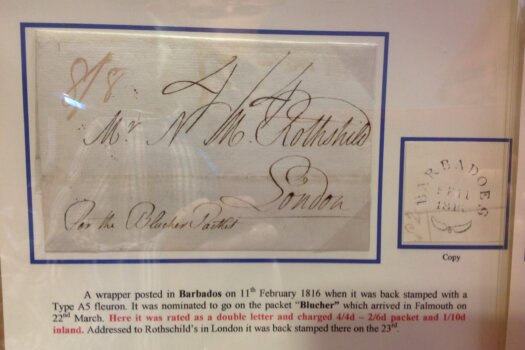 8/8
4/4
Mr N M Rothschild
London
For the Blucher Packet
BARBADOES
FE 11
181
Copy
A wrapper posted in Barbados on 11th February 1816 when it was back stamped with a
Type A5 fleuron. It was nominated to go on the packet "Blucher" which arrived in Falmouth on
22nd March. Here it was rated as a double letter and charged 4/4d – 2/6d packet and 1/10d
inland. Addressed to Rothschild's in London it was back stamped there on the 23rd.